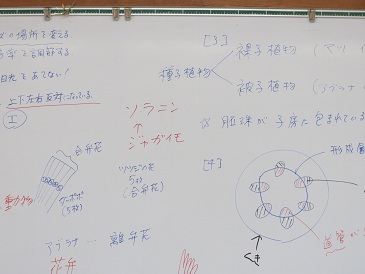 の場所を変える
で調節する
日光をあてない!
上下左右反対になっている
エ
ソラニン
↑
ジャガイモ
合弁花
タンポポ
(5枚)
ツツジの花
5枚
(合弁花)
アブラナ … 離弁花
花弁
[3]
種子植物
裸子植物 (マツ
被子植物 (アブラナ
※ 胚珠が子房に包まれている
[4]
形成層
道管
くき